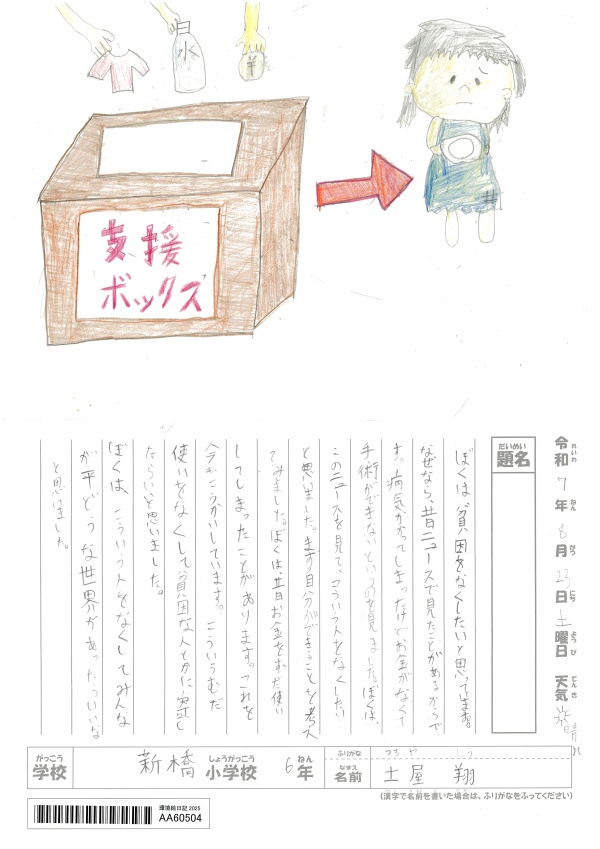 水
¥
支援
ボックス
だいめい
題名
令和7年8月23日土曜日 天気 晴れ
れいわ ねん がつ にち ようび てんき
ぼくは貧困をなくしたいと思ってます。
なぜなら、昔ニュースで見たことがあるからで
す。病気がかってしまったけどお金がなくて
手術ができないというのを見ました。ぼくは、
このニュースを見て、こういう人をなくしたい
と思いました。まず自分ができることを考え
てみました。ぼくは、昔お金をむだ使い
してしまったことがあります。これを
今もこうかいしています。こういうむだ
使いをなくして貧困な人とかに寄ふし
たらいいと思いました。
ぼくは、こういう人をなくしてみんな
が平どうな世界があったらいいな
と思いました。
がっこう しょうがっこう ねん
学校 新橋 小学校 6年
ふりがな つちや しょう
なまえ
名前 土屋 翔
(漢字で名前を書いた場合は、ふりがなをふってください)
環境絵日記 2025
AA60504